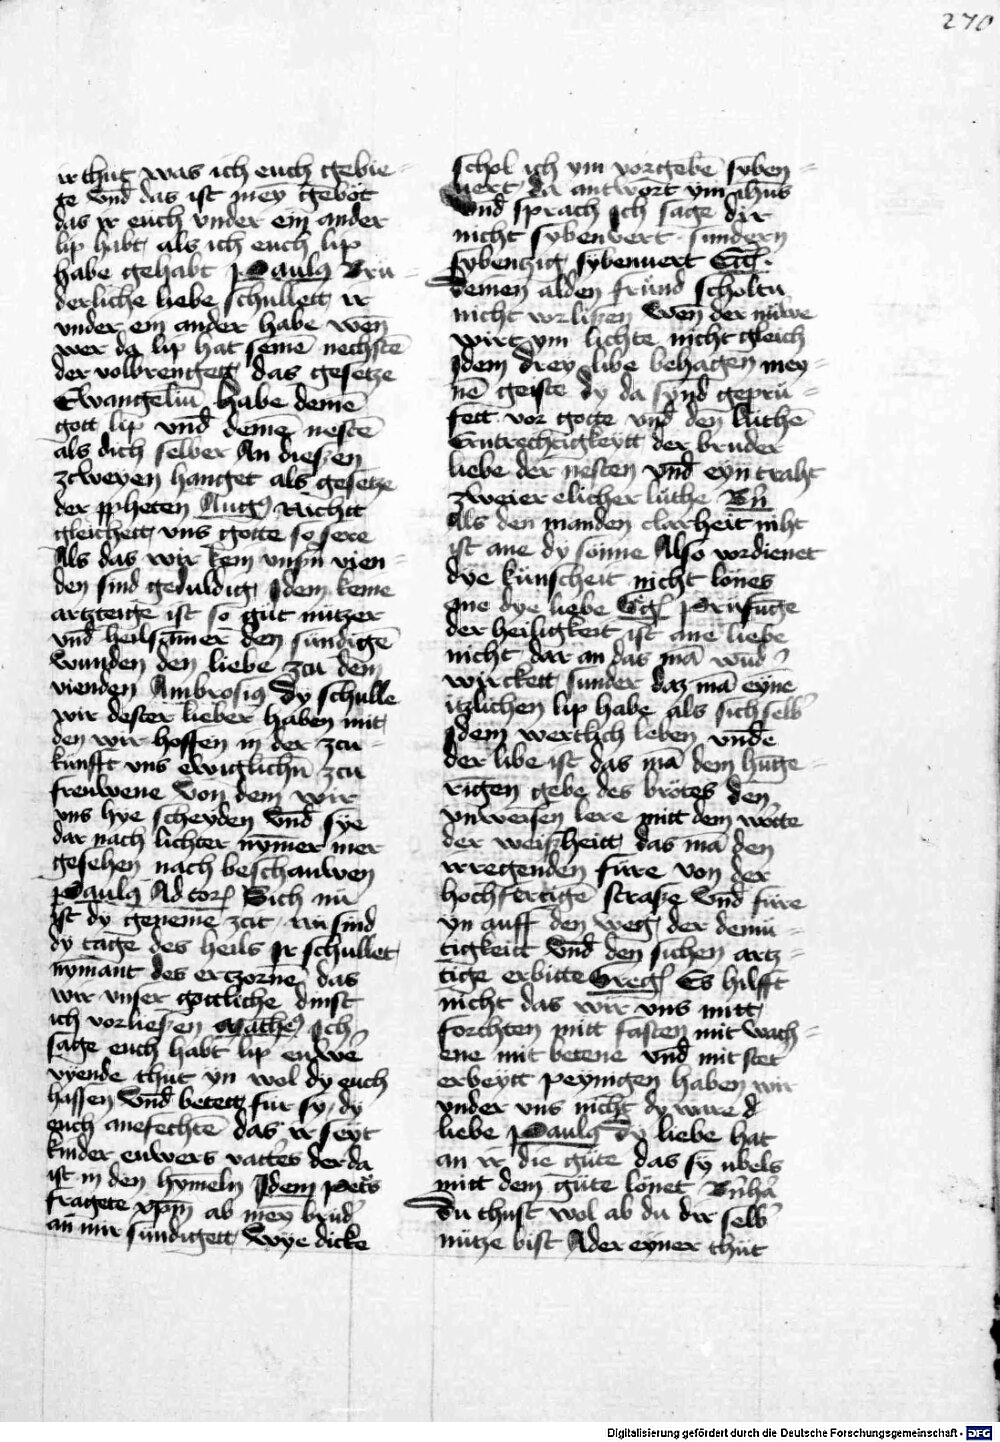 270
ir thut was ich euch gebie-
ge vnd das ist mey geböt
das ir euch vnder ein ander
lip habt, als ich euch lip
habe gehabt Paulꝰ Bru-
derliche liebe schullett ir
vnder ein ander habe wen̄
wer da lip hat seinē nechstē
der volbrengett das gesetze
Ewangeliū habe deinē
gott lip vnd̄ deinē nestē
als dich selber An dieszen
zcweyen hanget als gesetze
der ꝓpheten Augꝰ Nichtt
gleichett vns gotte so sere
Als das wir kein vnsn̄ vien-
den sind geduldig Idem keine
artzteige ist so gut nutzer
vnd̄ heilsāmer den sundigē
wunden den liebe zcu dem
vienden Ambrosiꝰ Dy schulle
wir dester lieber haben mit
den wir hoffen in der zcu-
künfft vns ewiglichn̄ zcu
freuwene Von dem wir
vns hye scheyden Vnd̄ sye
dar nach lichter nymer mer
gesehen nach beschauwen
Paulꝰ Ad cor Sich nū
ist dy geneme zcit nu sind
dy tage des heils Ir schullet
nymant des erczornē das
wir vnser gottliche dinst
ich vorlieszen Matheꝰ Ich
sage euch habt lip euwe͛
vyende thut yn wol dy euch
hassen Vnd̄ betett fur sy dy
euch anefechte das ir seyt
kinder euwers vatt͛es der da
ist in den hymeln Idem Pet͛s
fragete xpm̄ ab mey brud͛
an mir sundigett, Wye dicke
schol ich ym vorgebē syben-
wert da antwort ym ihūs
Vnd sprach Ich sage dir
nicht sybenwert sundern
sybenczig sybenwert
Deinen alden fründ scholtu
nicht vorlisen Wen der nüwe
wirt ym lichte nicht gleich
Idem drey libe behagen mey-
nē geiste dy da synd geprü-
fett vor gotte vnd̄ den lüthē
Entrechtigkeytt der bruder
liebe der nesten vnd̄ eyn traht
zweier elicher lüthe Bn̄
Als den manden clarheit niht
ist ane dy sonne Also vordienet
dye künscheit nicht lönes
one dye liebe Gg Prüfūge
der heiligkeit ist ane liebe
nicht dar an das mā wūd
wirckett sunder daz mā eynē
itzlichen lip habe als sich selb͛
Idem wertlich leben vnde
der libe ist das mā dem hūge-
rigen gebe des brötes den
vnweisen lere mitt dem worte
der weiszheitt das mā den
irregenden füre von der
hochfertigē strasze Vnd̄ füre
yn auff den weg der demü-
tigkeitt Vnd̄ den sichen artz-
tige erbitte Greg Es hilfft
nicht das wir vns mitt
forchten mitt fasten mit wach-
ene mit betene vnd̄ mit stet͛
erbeytt peynigen haben wir
vnder vns nicht dy ware
liebe Paulꝰ Dy liebe hat
an ir die güte das sy ubels
mitt dem güte lönet Bn̄hā
Du thust wol ab du dir selb͛
nütze bist Ader eyner thüt
Digitalisierung gefördert durch die Deutsche Forschungsgemeinschaft - DFG